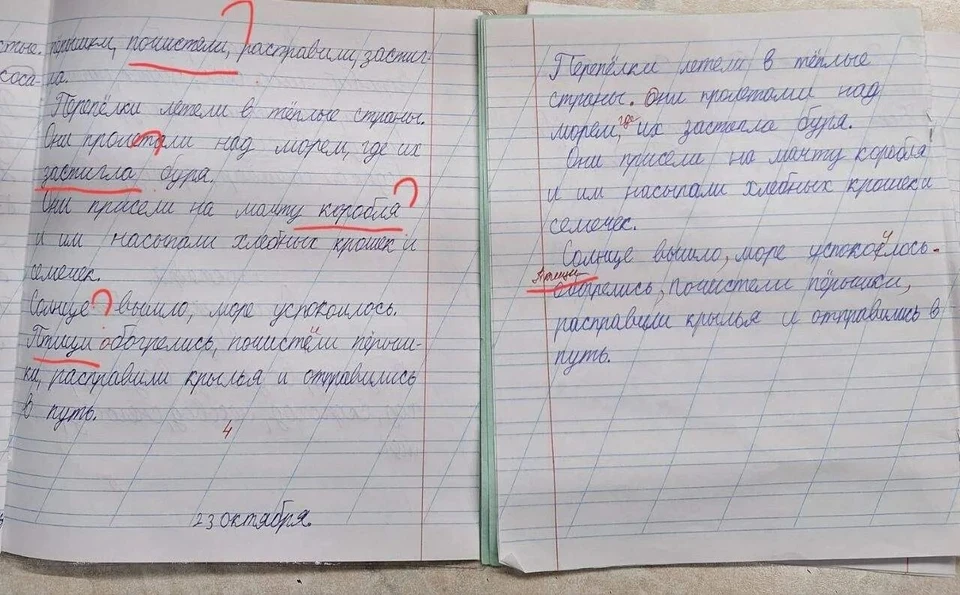 стые. пёрышки, почистели, расправили, застиг-
коса- ла.
Перепёлки летели в тёплые страны.
Они пролетали над морем, где их
застигла буря.
Они присели на мачту коробля
и им насыпали хлебных крошек и
семечек.
Солнце вышло, море успокоилось.
Птици обогрелись, почистели пёрыш-
ки, расправили крылья и отправились
в путь.
4
23 октября.
Перепёлки летели в тёплые
страны. Они пролетали над
морем, где их застегла буря.
Они присели на мачту корабля
и им насыпали хлебных крошек и
семечек.
Солнце вышло, море успокоилось.
Птицы
обогрелись, почистели пёрышки,
расправили крылья и отправились в
путь.